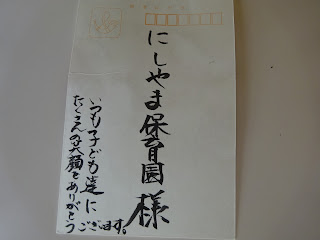 にしやま保育園様
いつも子ども達に
たくさんの笑顔をありがとう
ございます。